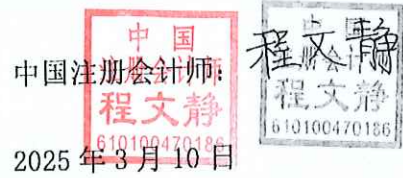 中国注册会计师：
程文静
中国
注册会计师
程文静
610100470186
中国
注册会计师
程文静
610100470186
2025年3月10日